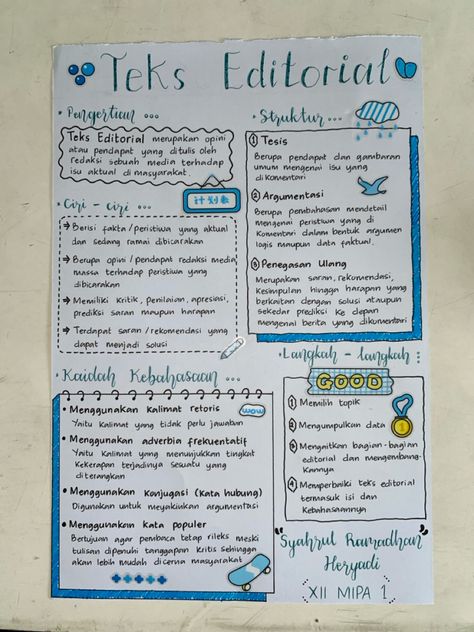 Teks Editorial
Pengertian ...
Teks Editorial merupakan opini
atau pendapat yang ditulis oleh
redaksi sebuah media terhadap
isu aktual di masyarakat.
Ciri - ciri ...
计划表
→ Berisi fakta / peristiwa yang aktual
dan sedang ramai dibicarakan
→ Berupa opini / pendapat redaksi media
massa terhadap peristiwa yang
dibicarakan
→ Memiliki kritik, penilaian, apresiasi,
prediksi saran maupun harapan
→ Terdapat saran / rekomendasi yang
dapat menjadi solusi
Kaidah Kebahasaan ...
• Menggunakan kalimat retoris
Yaitu kalimat yang tidak perlu jawaban
wow
• Menggunakan adverbia frekuentatif
Yaitu kalimat yang menunjukkan tingkat
kekerapan terjadinya sesuatu yang
diterangkan
• Menggunakan Konjugasi (Kata hubung)
Digunakan untuk meyakinkan argumentasi
• Menggunakan kata populer
Bertujuan agar pembaca tetap rileks meski
tulisan dipenuhi tanggapan kritis sehingga
akan lebih mudah di cerna masyarakat
Struktur ...
1 Tesis
Berupa pendapat dan gambaran
umum mengenai isu yang
dikomentari
2 Argumentasi
Berupa pembahasan mendetail
mengenai peristiwa yang di
komentari dalam bentuk argumen
logis maupun data faktual.
3 Penegasan Ulang
Merupakan saran, rekomendasi,
kesimpulan hingga harapan yang
berkaitan dengan solusi ataupun
sekedar prediksi ke depan
mengenai berita yang dikumentari
Langkah - langkah :
GOOD
1 Memilih topik
2 Mengumpulkan data
1
3 Mengaitkan bagian-bagian
editorial dan mengembang-
kannya
4 Memperbaiki teks editorial
termasuk isi dan
kebahasaannya
"Syahrul Ramadhan
Heryadi"
XII MIPA 1